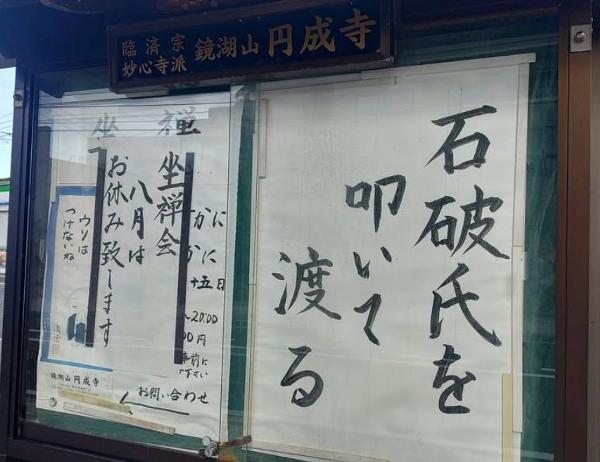 臨済宗
妙心寺派
鏡湖山 円成寺
石破氏を
叩いて
渡る
坐禅
坐禅会
八月は
お休み致します
かに
かに
十五日
~20:00
00円
事前に
下さい
お問い合わせ
ウソは
つけないね
鏡湖山 円成寺